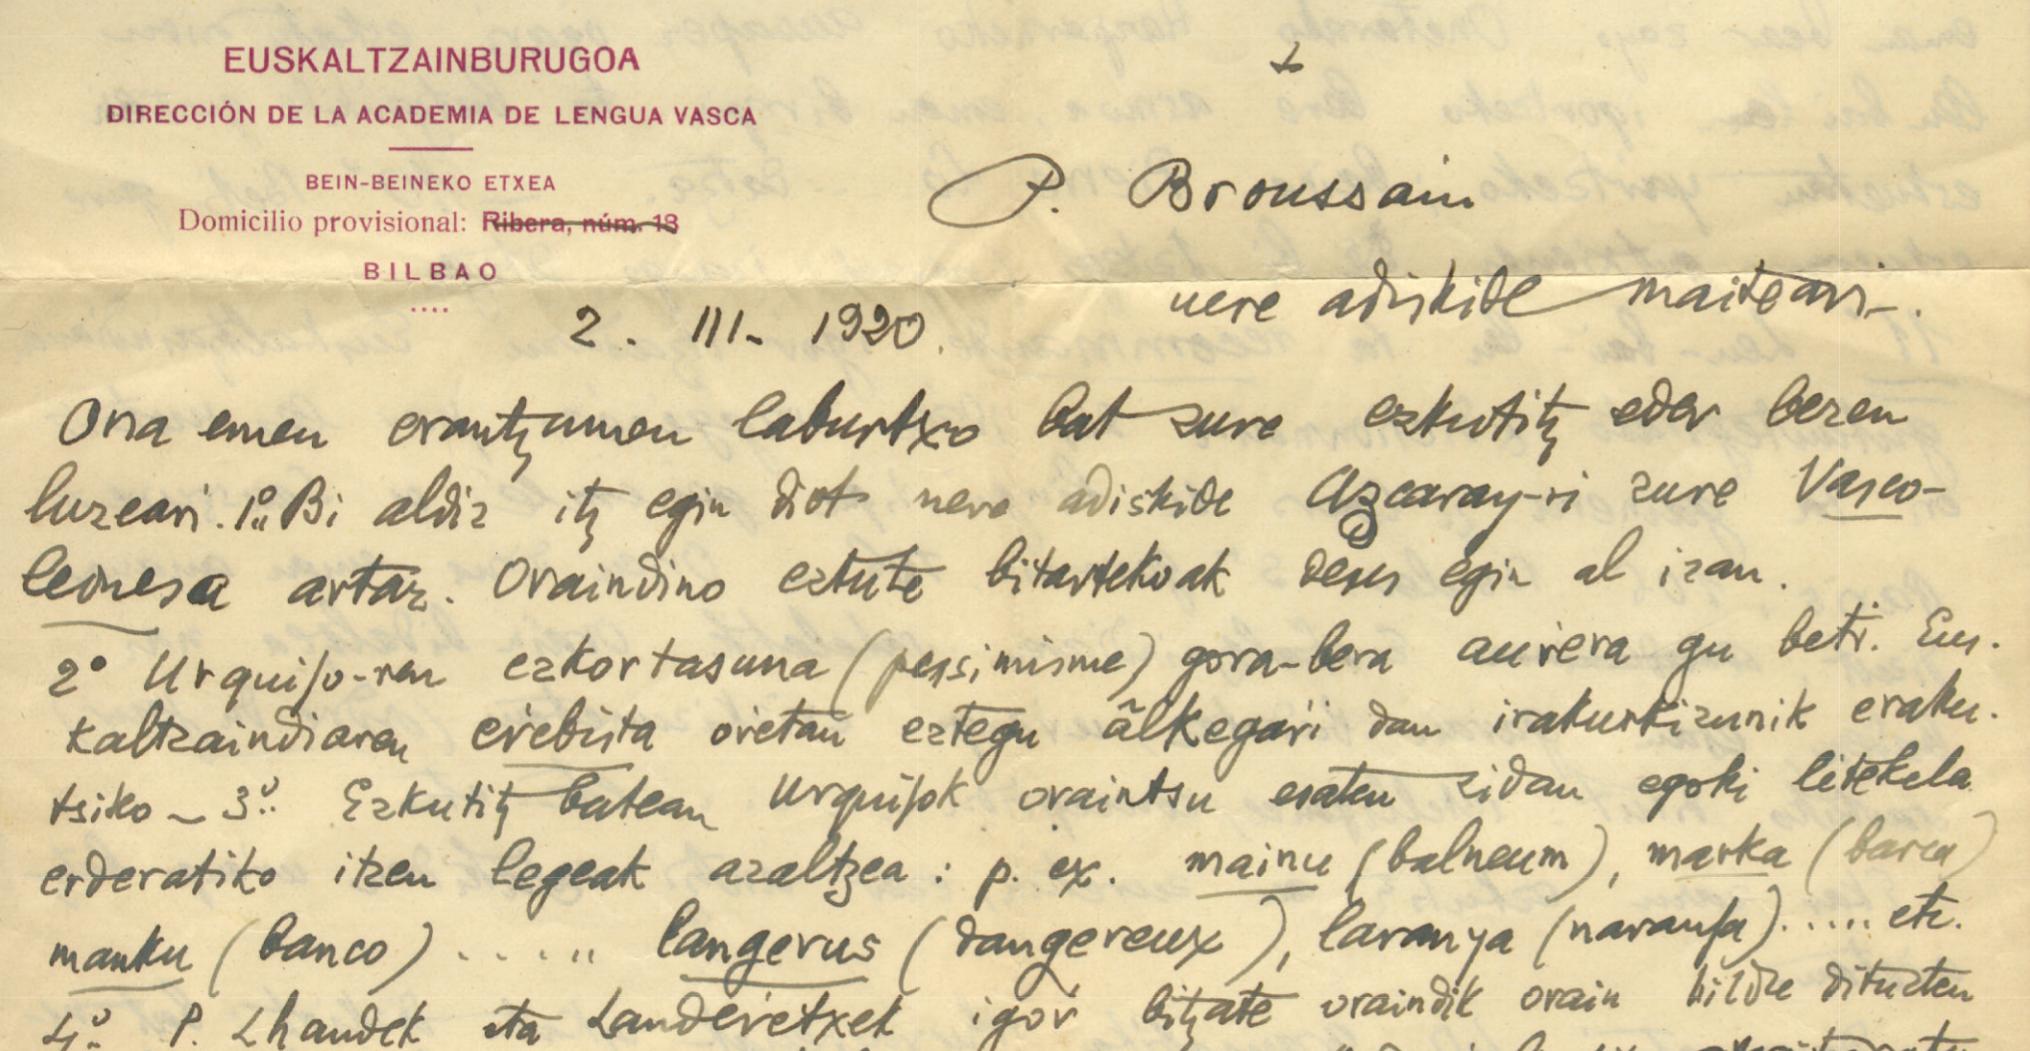 EUSKALTZAINBURUGOA
DIRECCIÓN DE LA ACADEMIA DE LENGUA VASCA
BEIN-BEINEKO ETXEA
Domicilio provisional: Ribera, núm. 18
BILBAO
P. Broussain
nere adiskide maiteari.
2. III. 1920.
Ona emen erantzumen laburtxo bat zure ezkutitz eder bezen
luzeari. 1º. Bi aldiz itz egin diot nere adiskide Azcaray-ri zure Vasco-
leonesa artaz. Oraindino eztute bitartekoak deus egin al izan.
2º Urquijo-ren ezkortasuna (pessimisme) gora-bera aurrera gu beti. Eus-
kaltzaindiaren erebista oretan eztegu alkegarri dan irakurkizunik eraku-
tsiko – 3º. Ezkutitz batean Urquijok oraintsu esaten zidan egoki litekela
erderatiko itzen legeak azaltzea: p. ex. mainu (balneum), marka (barca)
manku (banco) ...... langerus (dangereux), laranya (naranja)..... etc.
4º. P. Lhandek eta Landerretxek igor bitzate oraindik orain bildu dituzten